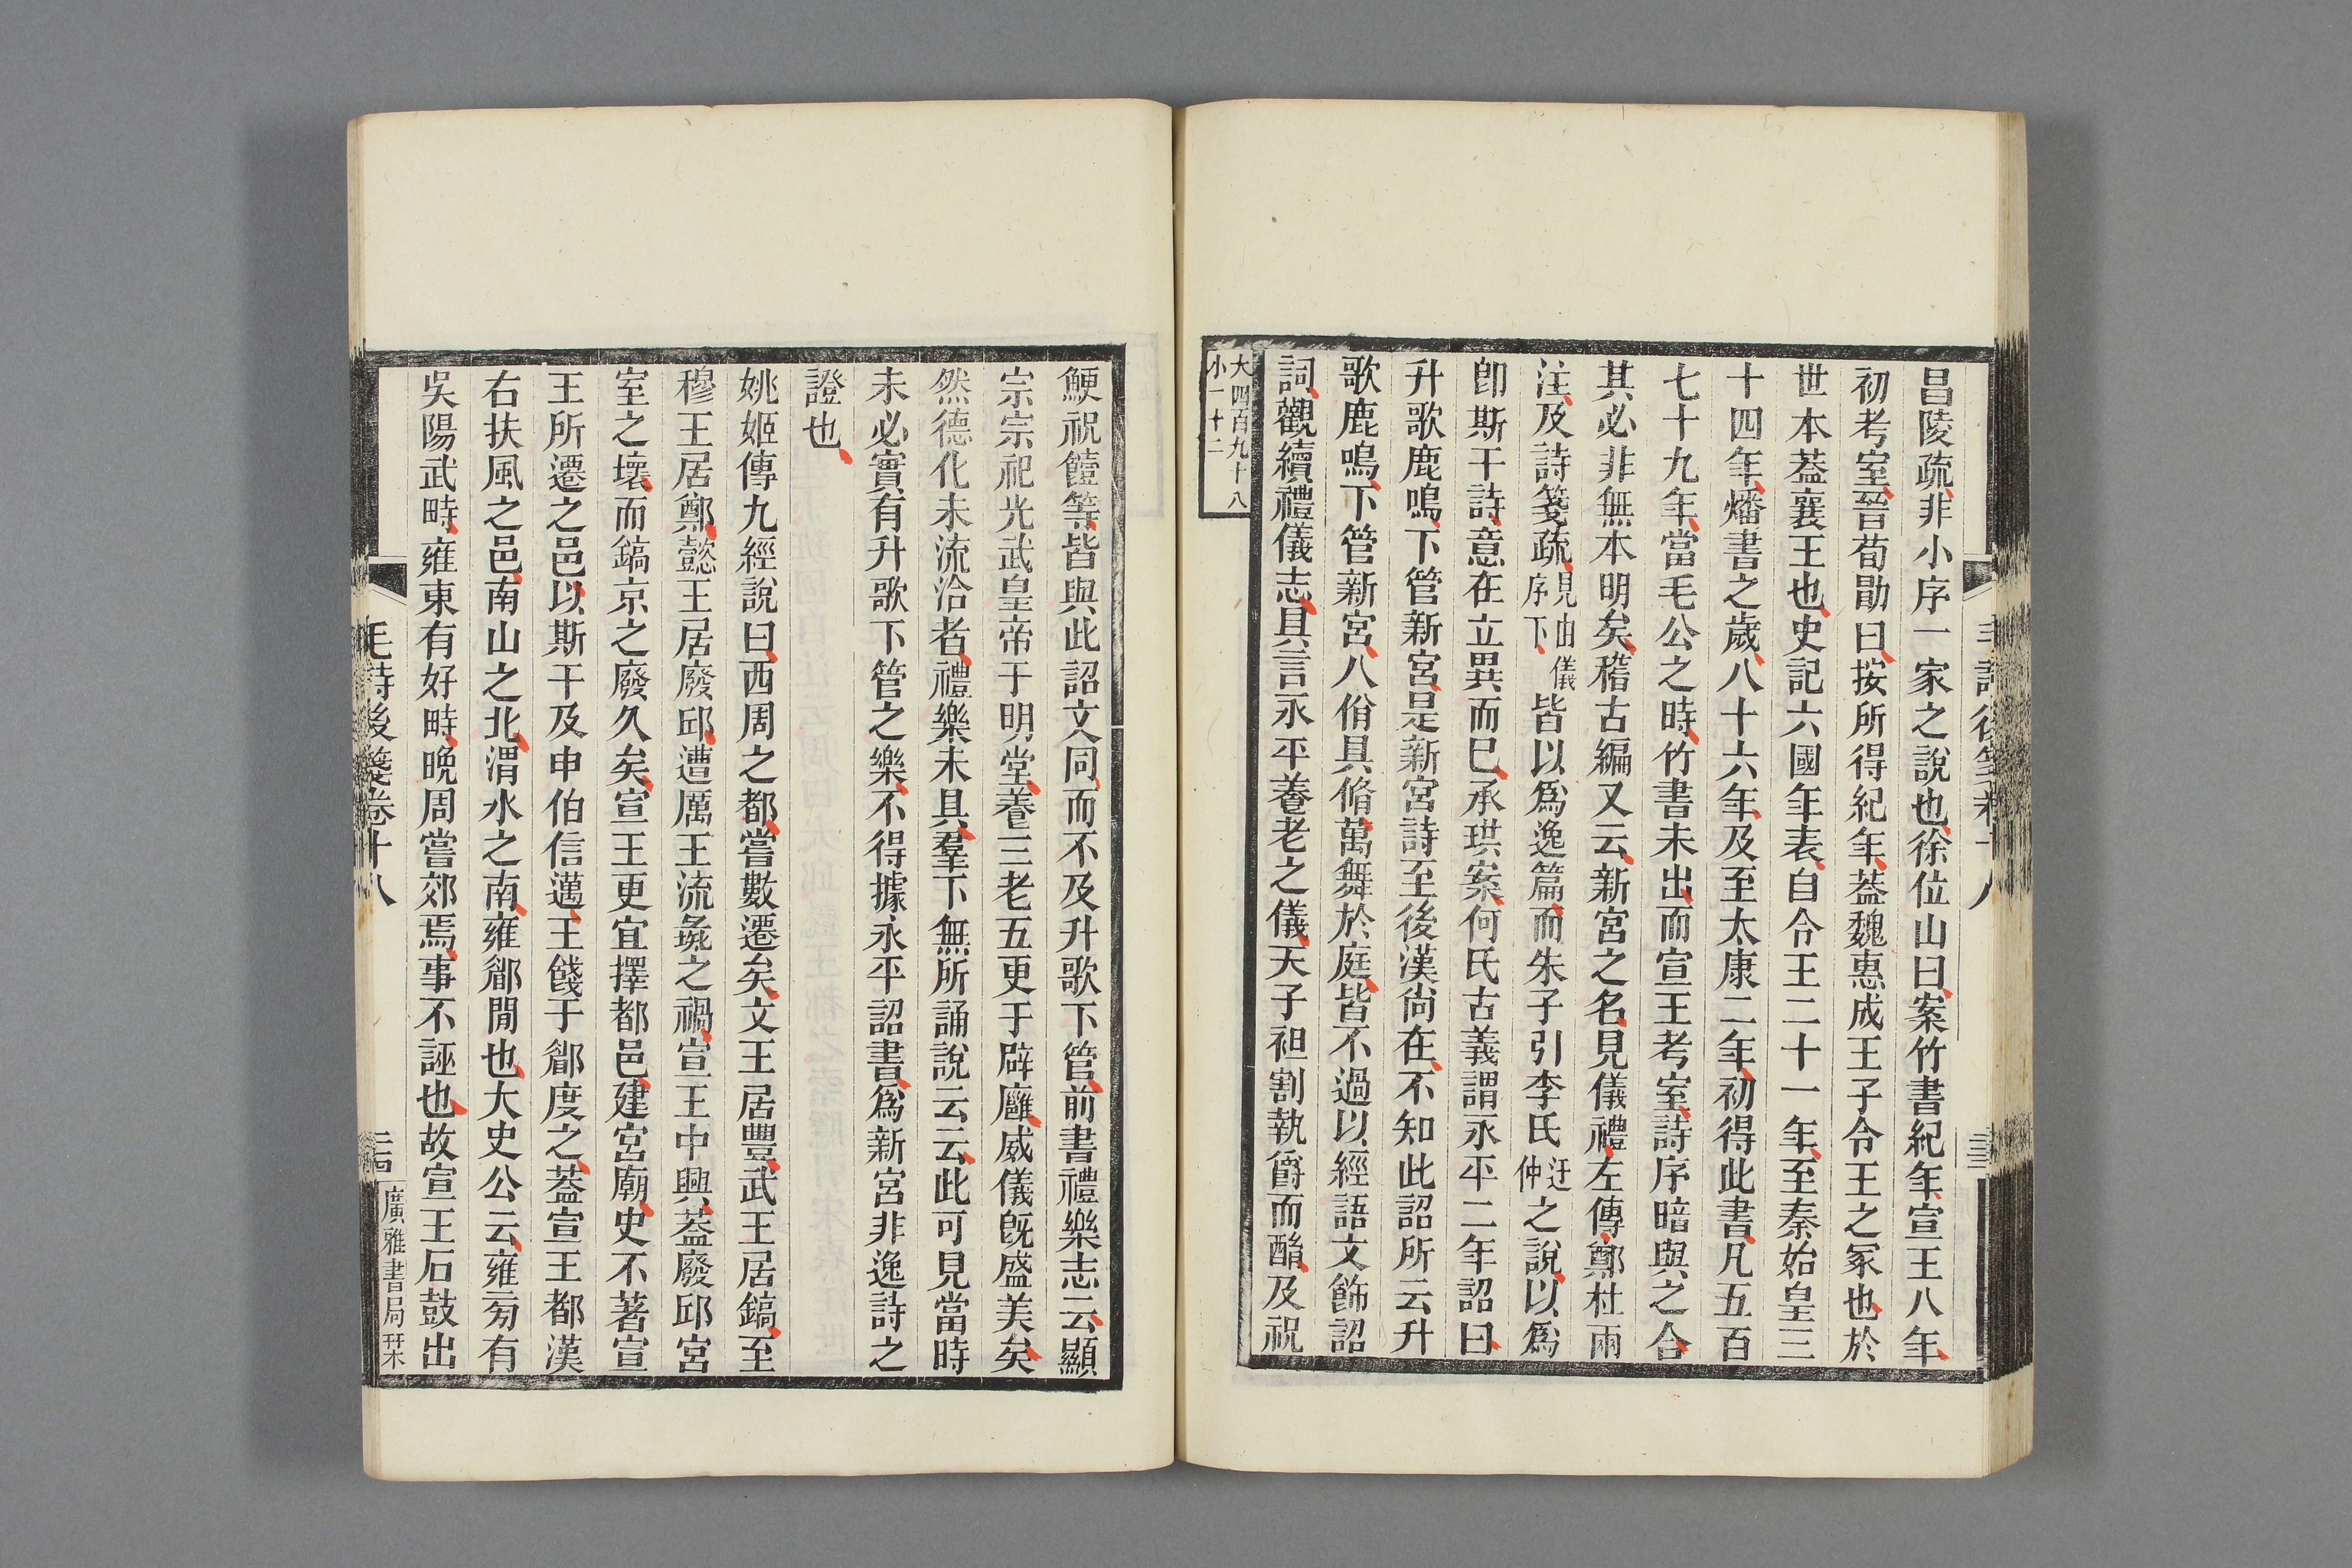 昌陵疏非小序一家之說也徐位山曰案竹書紀年宣王八年
初考室晉荀勖曰按所得紀年葢魏惠成王子令王之冢也於
世本葢襄王也史記六國年表自令王二十一年至秦始皇三
十四年燔書之歲八十六年及至太康二年初得此書凡五百
七十九年當毛公之時竹書未出而宣王考室詩序暗與之合
其必非無本明矣稽古編又云新宮之名見儀禮左傳鄭杜兩
注及詩箋疏見由儀序下皆以爲逸篇而朱子引李氏迂仲之說以爲
卽斯干詩意在立異而已承珙案何氏古義謂永平二年詔曰
升歌鹿鳴下管新宮是新宮詩至後漢尚在不知此詔所云升
歌鹿鳴下管新宮八佾具脩萬舞於庭皆不過以經語文飾詔
詞觀續禮儀志具言永平養老之儀天子袒割執爵而酳及祝
大四百九十八
小一十二
鯁祝饐等皆與此詔文同而不及升歌下管前書禮樂志云顯
宗宗祀光武皇帝于明堂養三老五更于辟廱威儀旣盛美矣
然德化未流洽者禮樂未具羣下無所誦說云云此可見當時
未必實有升歌下管之樂不得據永平詔書爲新宮非逸詩之
證也
姚姬傳九經說曰西周之都嘗數遷矣文王居豐武王居鎬至
穆王居鄭懿王居廢邱遭厲王流彘之禍宣王中興葢廢邱宮
室之壞而鎬京之廢久矣宣王更宜擇都邑建宮廟史不著宣
王所遷之邑以斯干及申伯信邁王餞于郿度之葢宣王都漢
右扶風之邑南山之北渭水之南雍郿閒也大史公云雍旁有
吳陽武畤雍東有好畤晚周嘗郊焉事不誣也故宣王石鼓出
毛詩後箋卷十八
廣雅書局栞